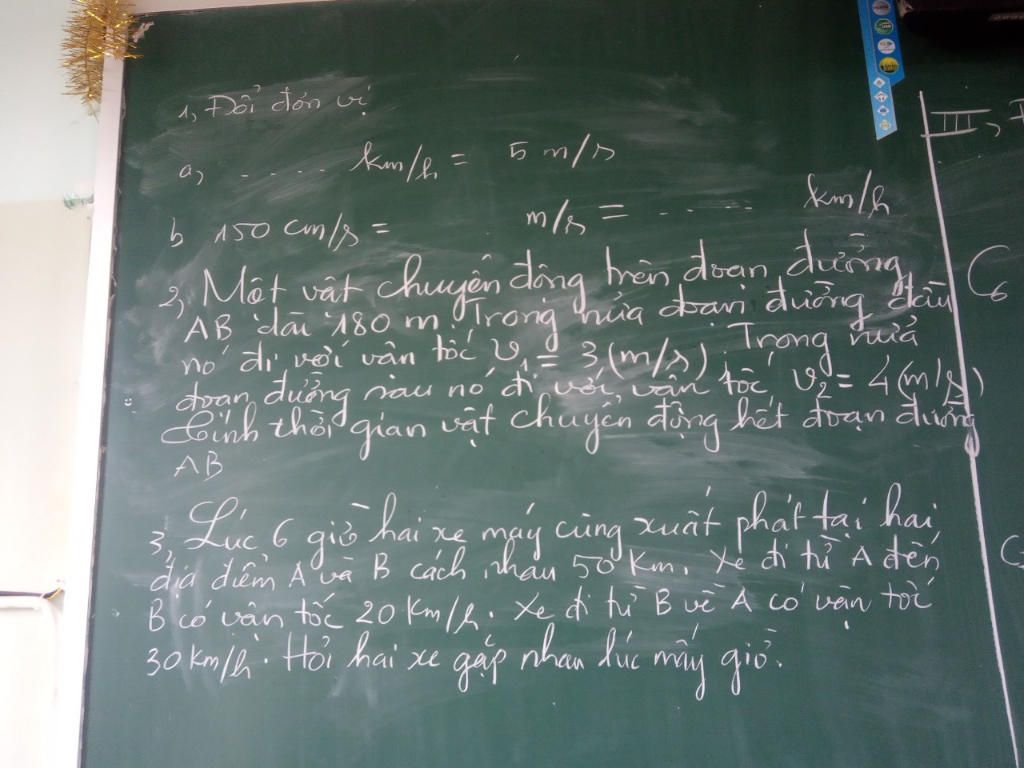 1, Đổi đơn vị
a, ..... km/h = 5 m/s
b 150 cm/s = m/s = ..... km/h
2, Một vật chuyển động trên đoạn đường
AB dài 180 m. Trong nửa đoạn đường đầu
nó đi với vận tốc v1 = 3 (m/s). Trong nửa
đoạn đường sau nó đi với vận tốc v2 = 4 (m/s)
Tính thời gian vật chuyển động hết đoạn đường
AB
3, Lúc 6 giờ hai xe máy cùng xuất phát tại hai
địa điểm A và B cách nhau 50 Km. Xe đi từ A đến
B có vận tốc 20 Km/h. Xe đi từ B về A có vận tốc
30 Km/h. Hỏi hai xe gặp nhau lúc mấy giờ.
III,
C6